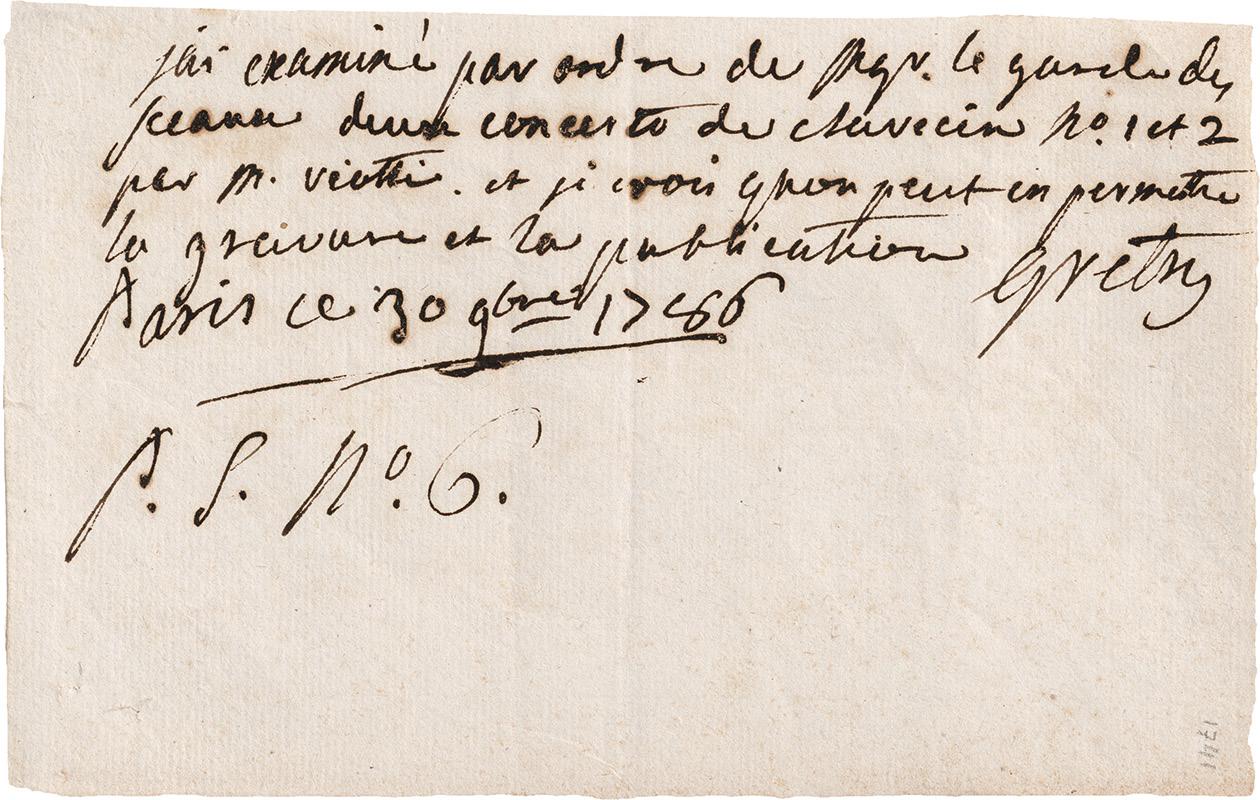 jai examiné par ordre de Mgr. le garde des
sceaux deux concerto de clavecin No. 1 et 2
par M. viotti. et je crois qu'on peut en permettre
la gravure et la publication
gretry
Paris ce 30 9bre 1786
P. S. No. 6.
1741